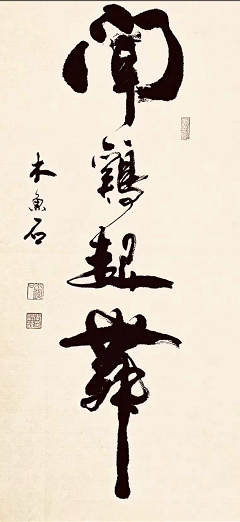 聞鷄起舞
木魚石